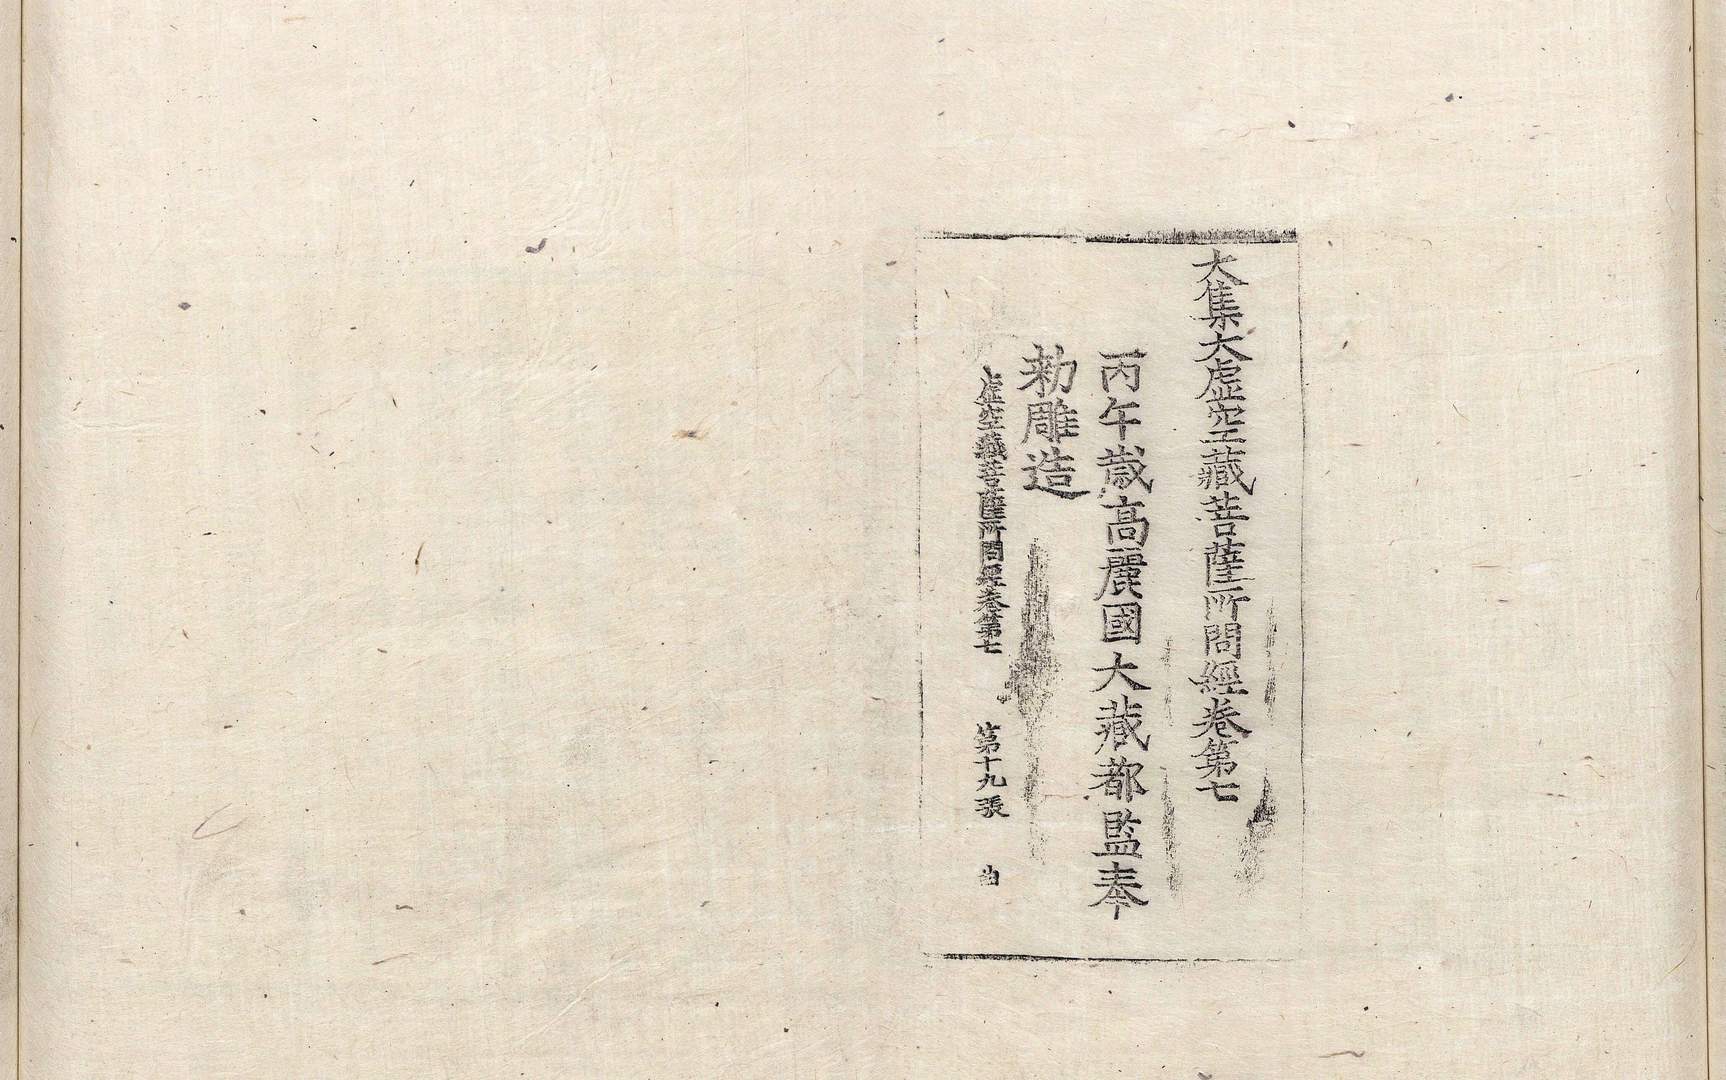 大集大虛空藏菩薩所問經卷第七
丙午歲高麗國大藏都監奉
勅雕造
虛空藏菩薩所問經卷第七 第十九張 曲